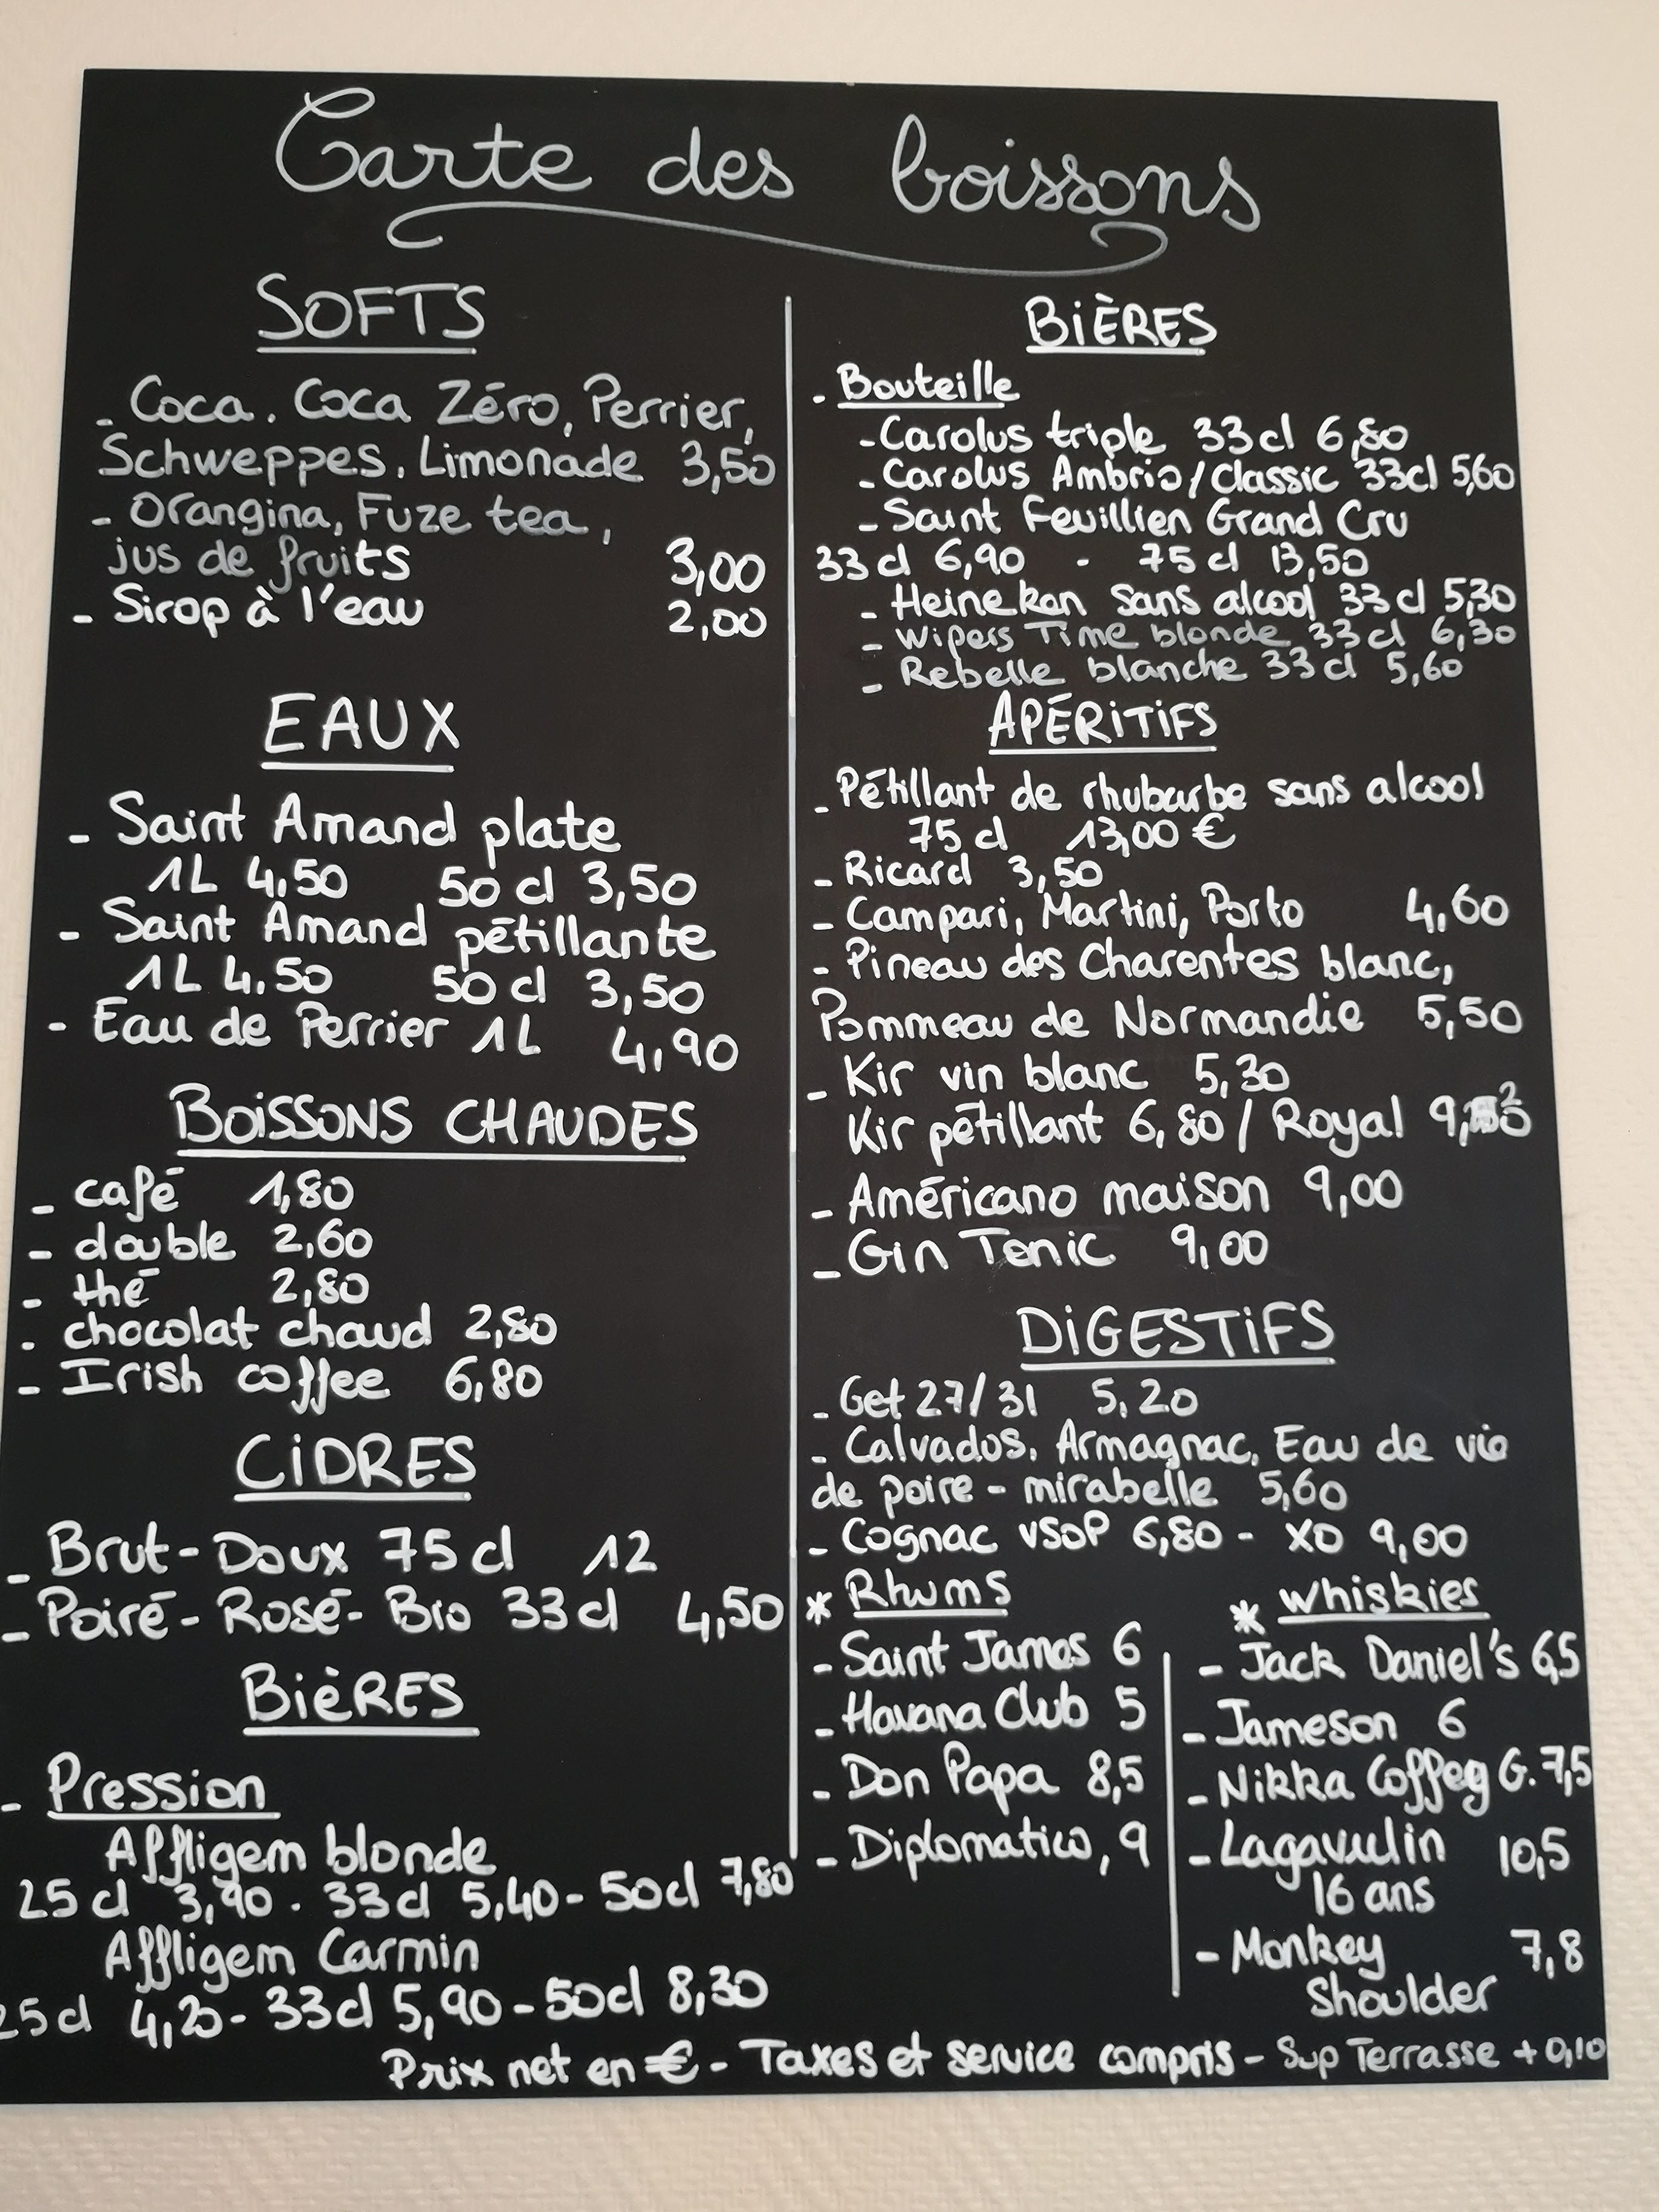 Carte des boissons
SOFTS
- Coca, Coca Zéro, Perrier,
Schweppes, Limonade 3,50
- Orangina, Fuze tea,
jus de fruits 3,00
- Sirop à l'eau 2,00
EAUX
- Saint Amand plate
1L 4,50 50 cl 3,50
- Saint Amand pétillante
1L 4,50 50 cl 3,50
- Eau de Perrier 1L 4,90
BOISSONS CHAUDES
- café 1,80
- double 2,60
- thé 2,80
- chocolat chaud 2,80
- Irish coffee 6,80
CIDRES
- Brut - Doux 75 cl 12
- Poiré - Rosé - Bio 33 cl 4,50
BIÈRES
- Pression
Affligem blonde
25 cl 3,90 - 33 cl 5,40 - 50 cl 7,80
Affligem Carmin
25 cl 4,20 - 33 cl 5,90 - 50 cl 8,30
BIÈRES
- Bouteille
- Carolus triple 33 cl 6,80
- Carolus Ambrio / Classic 33 cl 5,60
- Saint Feuillien Grand Cru
33 cl 6,90 - 75 cl 13,50
- Heineken sans alcool 33 cl 5,30
- Wipers Time blonde 33 cl 6,30
- Rebelle blanche 33 cl 5,60
APÉRITIFS
- Pétillant de rhubarbe sans alcool
75 cl 13,00 €
- Ricard 3,50
- Campari, Martini, Porto 4,60
- Pineau des Charentes blanc,
Pommeau de Normandie 5,50
- Kir vin blanc 5,30
Kir pétillant 6,80 / Royal
- Américano maison 9,00
- Gin Tonic 9,00
DIGESTIFS
- Get 27/31 5,20
- Calvados, Armagnac, Eau de vie
de poire - mirabelle 5,60
- Cognac VSOP 6,80 - XO 9,00
* Rhums
- Saint James 6
- Havana Club 5
- Don Papa 8,5
- Diplomatico, 9
* Whiskies
- Jack Daniel's 6,5
- Jameson 6
- Nikka Coffey G. 7,5
- Lagavulin 10,5
16 ans
- Monkey 7,8
Shoulder
Prix net en € - Taxes et service compris - Sup Terrasse + 0,10